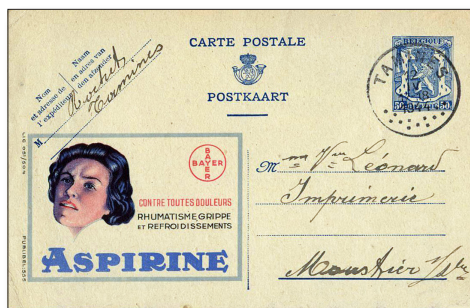 CARTE POSTALE
POSTKAART
Nom
et adresse de
l'expéditeur
Naam
en adres van
den afzender
M
Rochet
Tamines
BELGIQUE
50
50
TAMINES
BAYER
BAYER
CONTRE TOUTES DOULEURS
RHUMATISME, GRIPPE
ET REFROIDISSEMENTS
ASPIRINE
PUBLIBEL 535
Mme Vve Léonard
Imprimerie
Moustier s/Sre